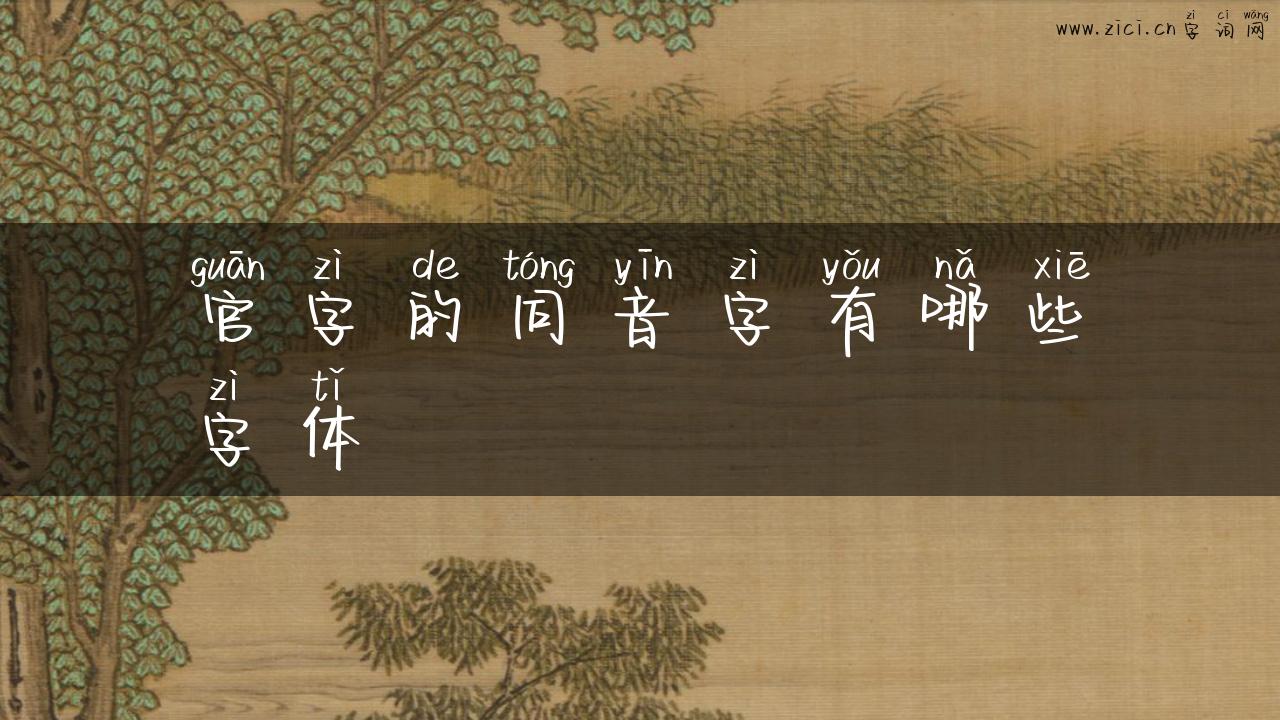 zì cí wǎng
www.zici.cn 字 词 网
guān zì de tóng yīn zì yǒu nǎ xiē
官 字 的 同 音 字 有 哪 些
zì tǐ
字 体